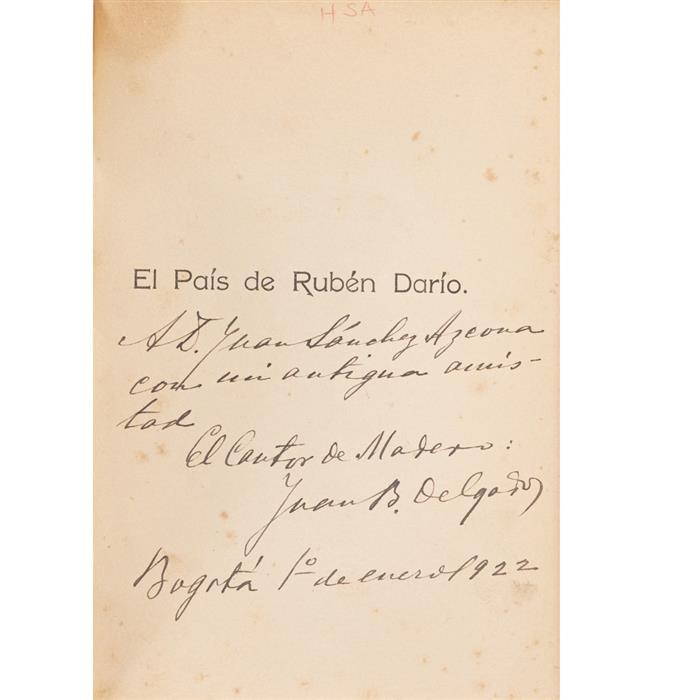 HSA
El País de Rubén Darío.
A D. Juan Sánchez Azcona
con mi antigua amis-
tad
El Cantor de Madero:
Juan B. Delgado
Bogotá 1º de enero 1922